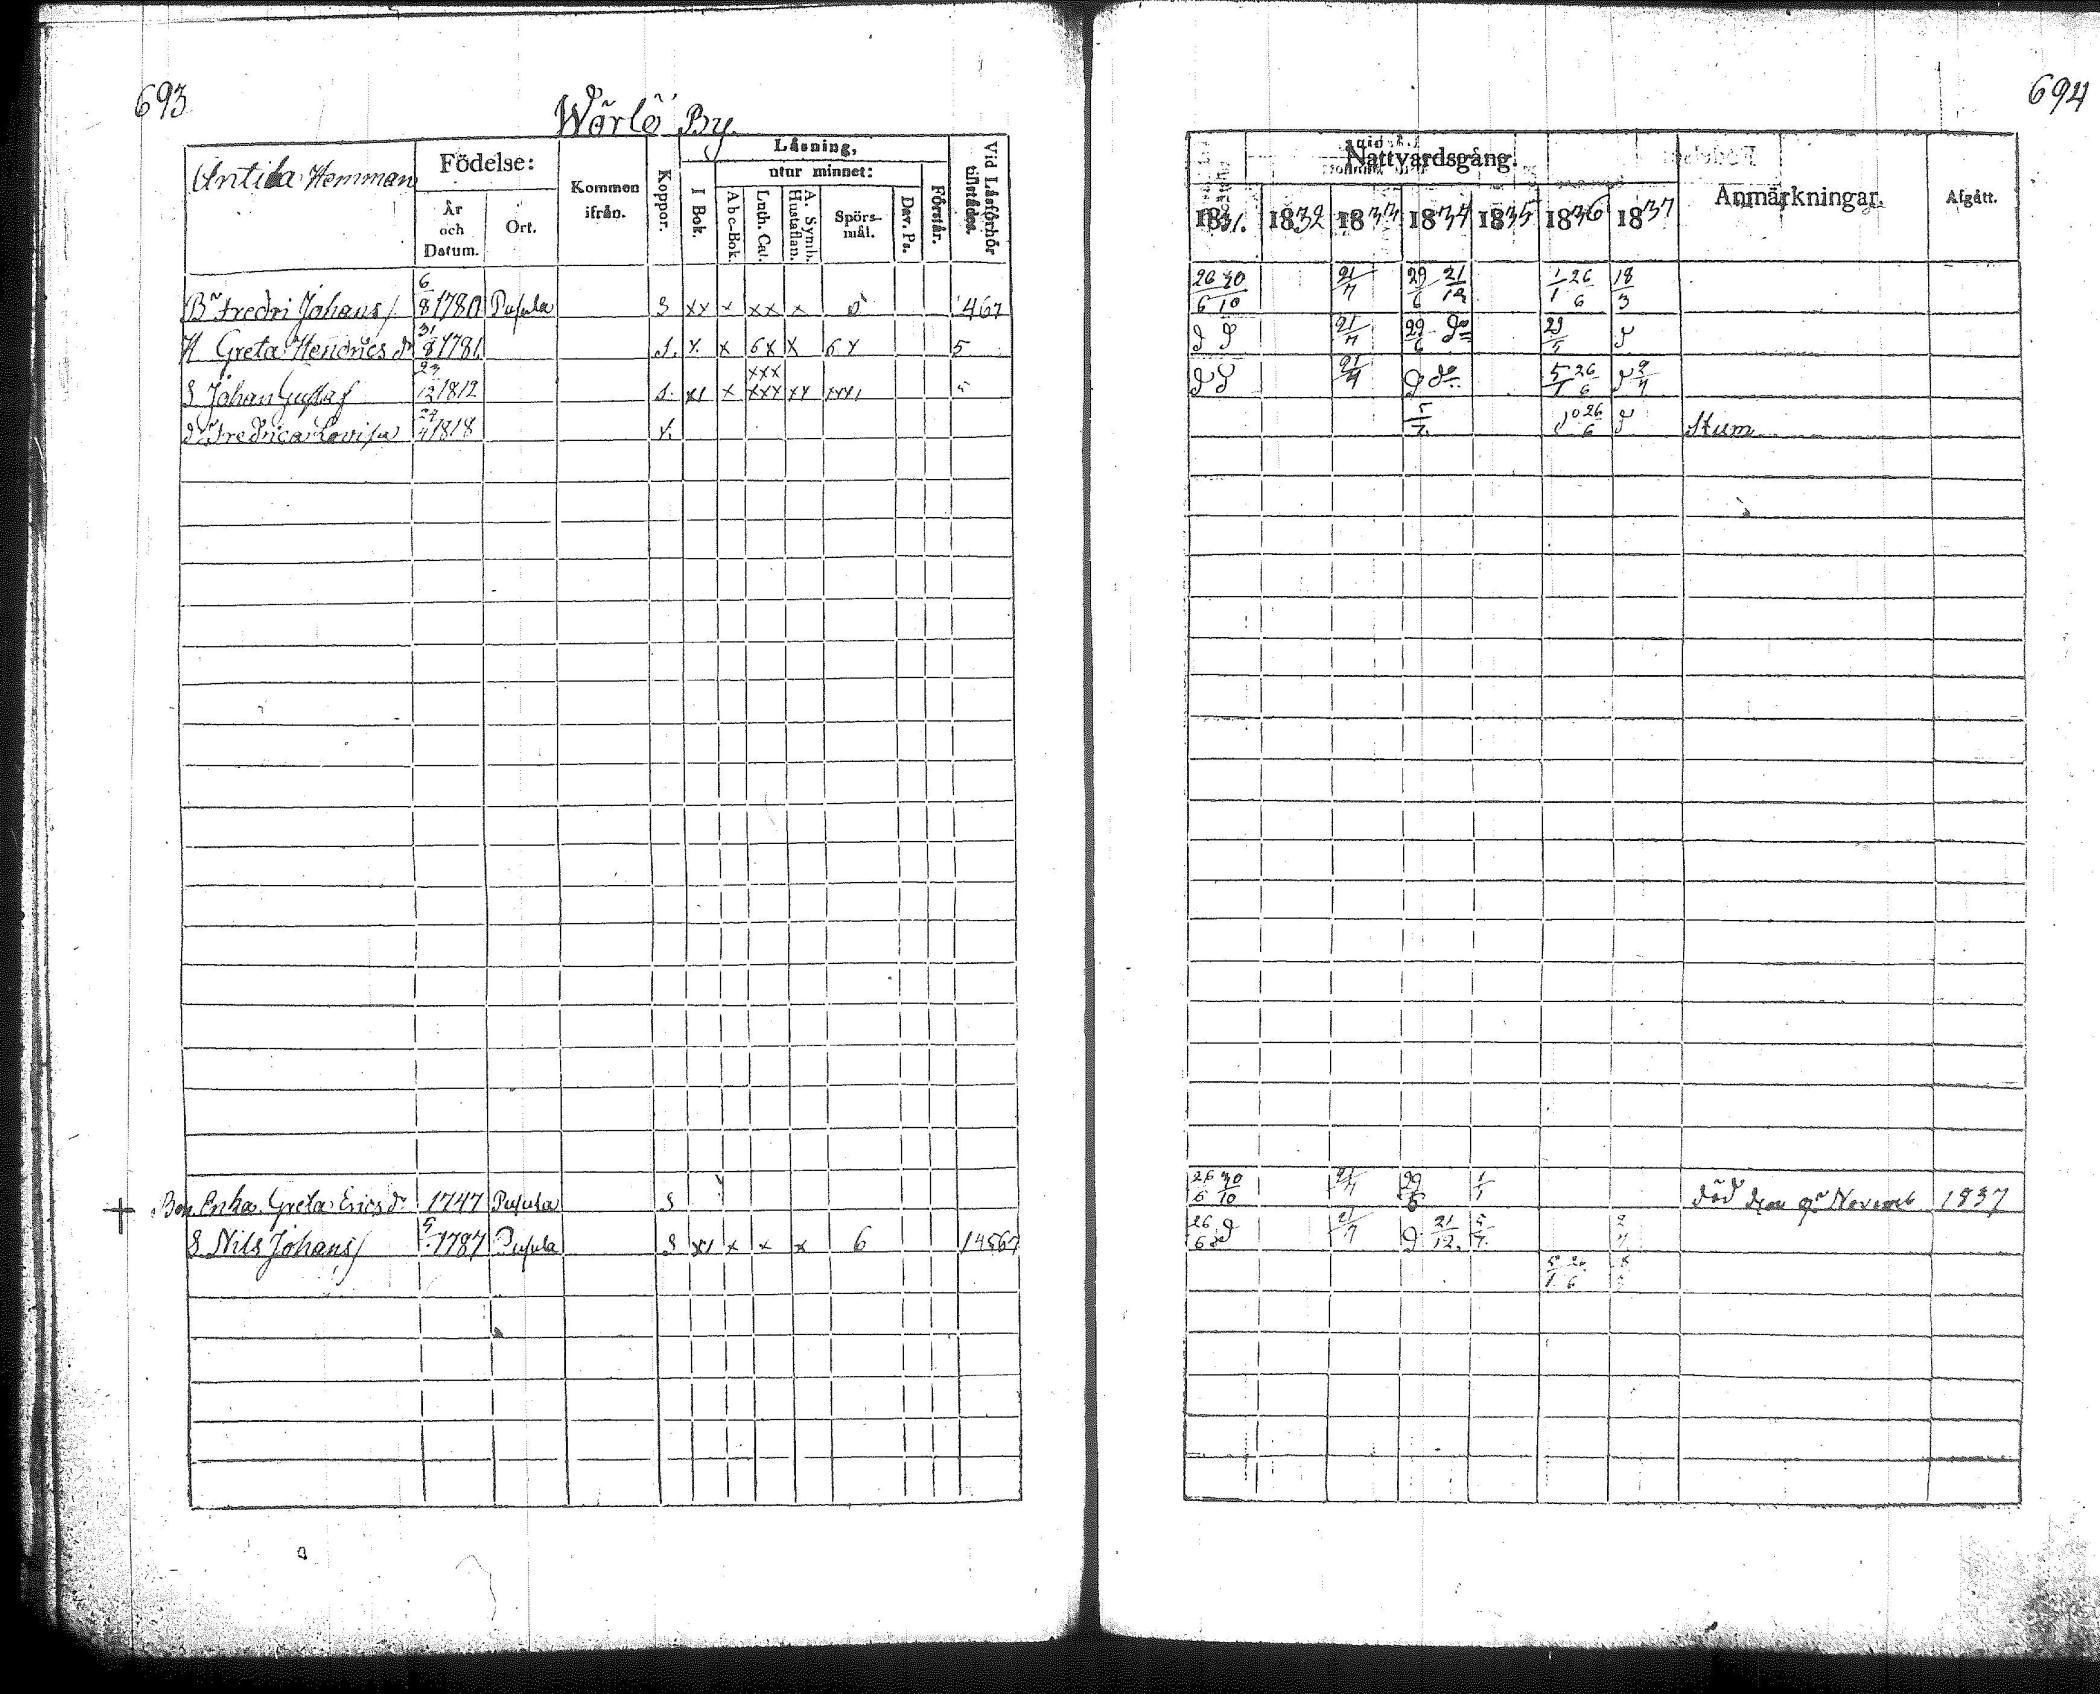 693
Wårlö By.
Antila Hemman
Födelse:
År och Datum.
Ort.
Kommen ifrån.
Koppor.
Läsning,
I Bok.
utur minnet:
Abc-Bok.
Luth. Cat.
A. Symb. Hustaflan.
Spörs-mål.
Dav. Ps.
Förstår.
Vid Läsförhör tillstädes.
B. Fredri Johans 6/8 1780 Pusula S xx x xx x 467
H Greta Hendrics dr 31/8 1781 S. x. x 6x x 6x 5
xxx
S Johan Gustaf 23/12 1812 S. x1 x xxx xx xxx1 5
dr Fredrica Lovisa 24/4 1818 x.
+ Bon. Enka Greta Erics dr 1747 Pusula S
S Nils Johans 1787 Pusula S x1 x x x 6 14567
694
Nattvardsgång.
Anmärkningar.
Afgått.
1831. 1832 1833 1834 1835 1836 1837
26/6 30/10 21/7 29/6 21/12 1/1 26/6 18/3
21/7 29/6 do 29/5
21/7 do 5/1 26/6 2/7
5/7 26/6 Stum
26/6 30/10 21/7 29/6 1/1 död den 9de Novemb 1837
26/6 21/7 21/12. 5/7 2/7
5/1 26/6